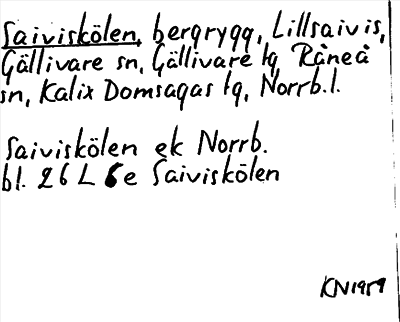 Saiviskölen, bergrygg, Lillsaivis,
Gällivare sn, Gällivare tg Råneå
sn, Kalix Domsagas tg, Norrb.l.
Saiviskölen ek Norrb.
bl. 26 L 6e Saiviskölen
KN1959